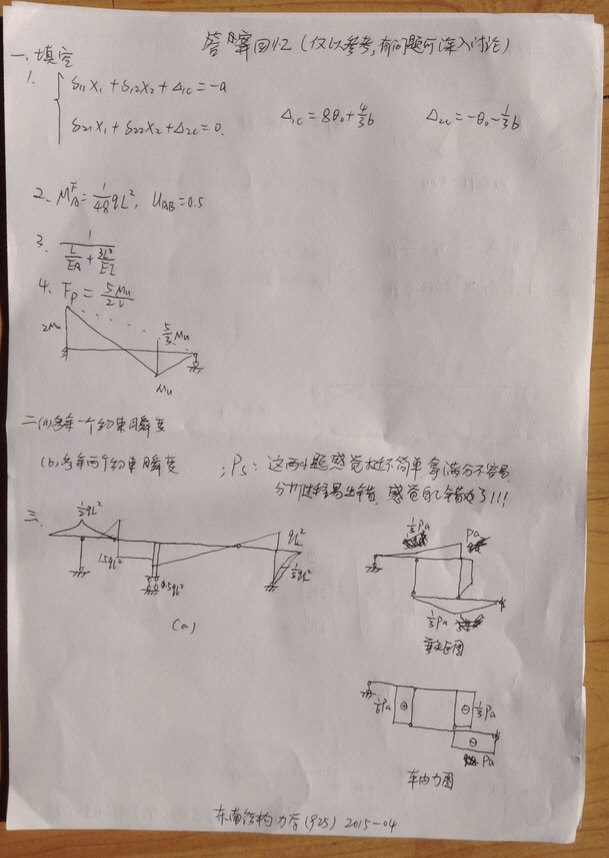 答案回忆(仅供参考,有问题可深入讨论)
一、填空
1. δ₁₁X₁+δ₁₂X₂+Δ₁c=-a
δ₂₁X₁+δ₂₂X₂+Δ₂c=0. Δ₁c=8θ₀+4/3b Δ₂c=-θ₀-1/3b
2、M_A^F=1/48qL², U_AB=0.5
3. 1/(L/EA+3L²/EI)
4. F_P=5Mu/2L
2Mu
5/3Mu
Mu
二(a)多余一个约束瞬变
(b)多余两个约束瞬变 ;Ps:这两小题感觉 简单,拿满分不容易
分析过程易出错,感觉自己错了!!!
三.
1/2qL²
1.5qL²
0.5qL²
qL²
1/2qL²
(a)
1/3Pa
Pa
1/3Pa
弯矩图
1/3Pa
⊕
⊖
1/3Pa
⊖
Pa
轴力图
东南结构力学(925) 2015-04